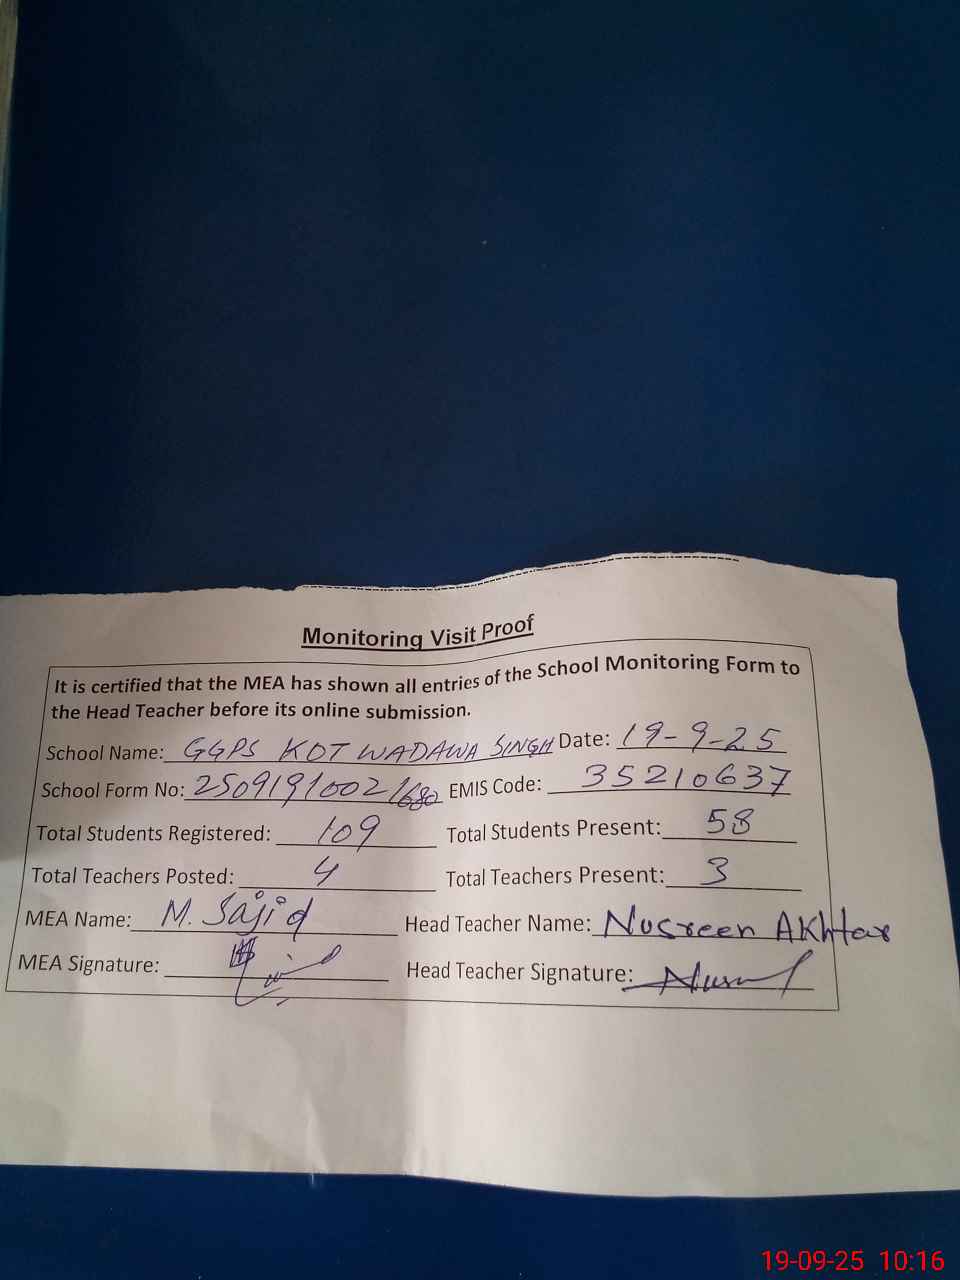 Monitoring Visit Proof
It is certified that the MEA has shown all entries of the School Monitoring Form to
the Head Teacher before its online submission.
School Name: GGPS KOT WADAWA SINGH Date: 19-9-25
School Form No: 2509191002/680 EMIS Code: 35210637
Total Students Registered: 109 Total Students Present: 58
Total Teachers Posted: 4 Total Teachers Present: 3
MEA Name: M. Sajid Head Teacher Name: Nusreen AKhtar
MEA Signature: Head Teacher Signature:
19-09-25 10:16